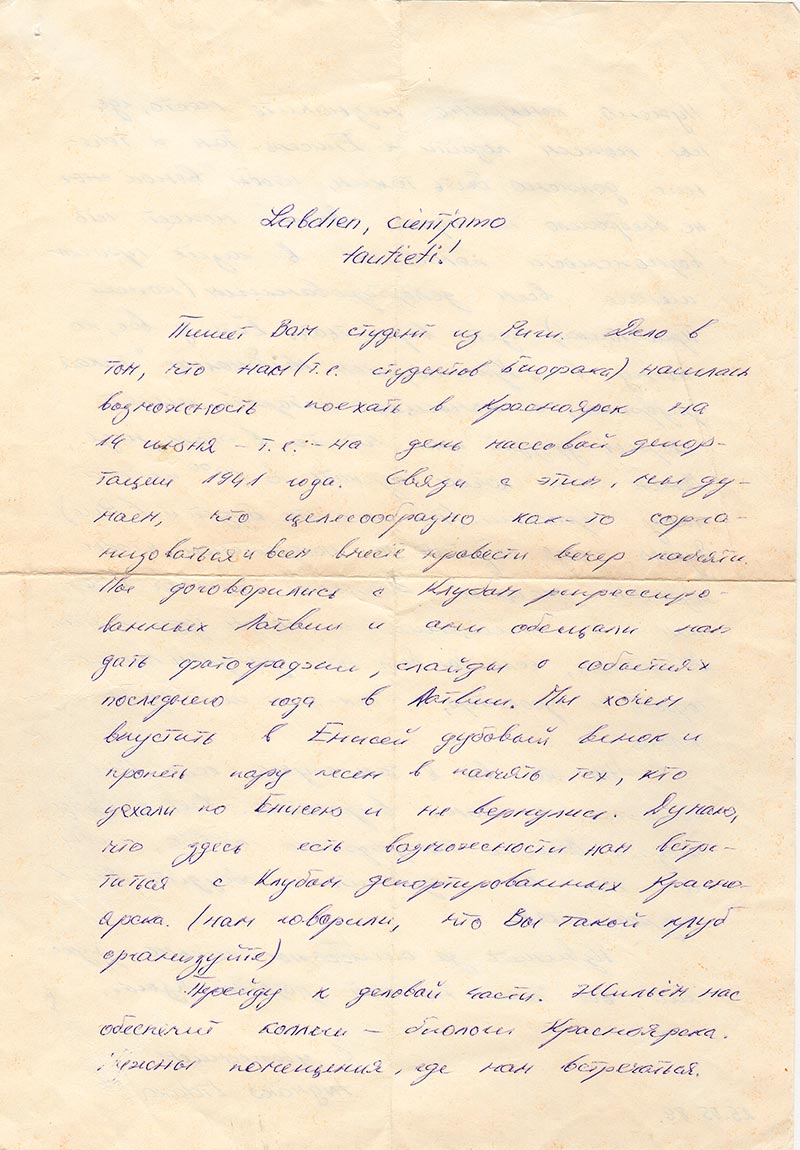 Labdien, cienījamo
tautieti!
Пишет Вам студент из Риги. Дело в
том, что нам (т.е. студентов Биофака) нашлась
возможность поехать в Красноярск на
14 июня – т.е. – на день массовой депор-
тации 1941 года. Связи с этим, мы ду-
маем, что целесообразно как-то сорга-
низоваться и всем вместе провести вечер памяти.
Мы договорились с Клубам репрессиро-
ванных Латвии и ани обещали нам
дать фатографии, слайды о событиях
последнего года в Латвии. Мы хочем
впустить в Енисей дубовый венок и
пропеть пару песен в память тех, кто
уехали по Енисею и не вернулись. Думаю,
что здесь есть возможности нам встре-
титься с Клубам депортированных Красно-
ярска. (нам говорили, что Вы такой клуб
организуйте)
Перейду к деловой части. Жильём нас
обеспечит коллеги – биологи Красноярска.
Нужны помещения, где нам встречаться.